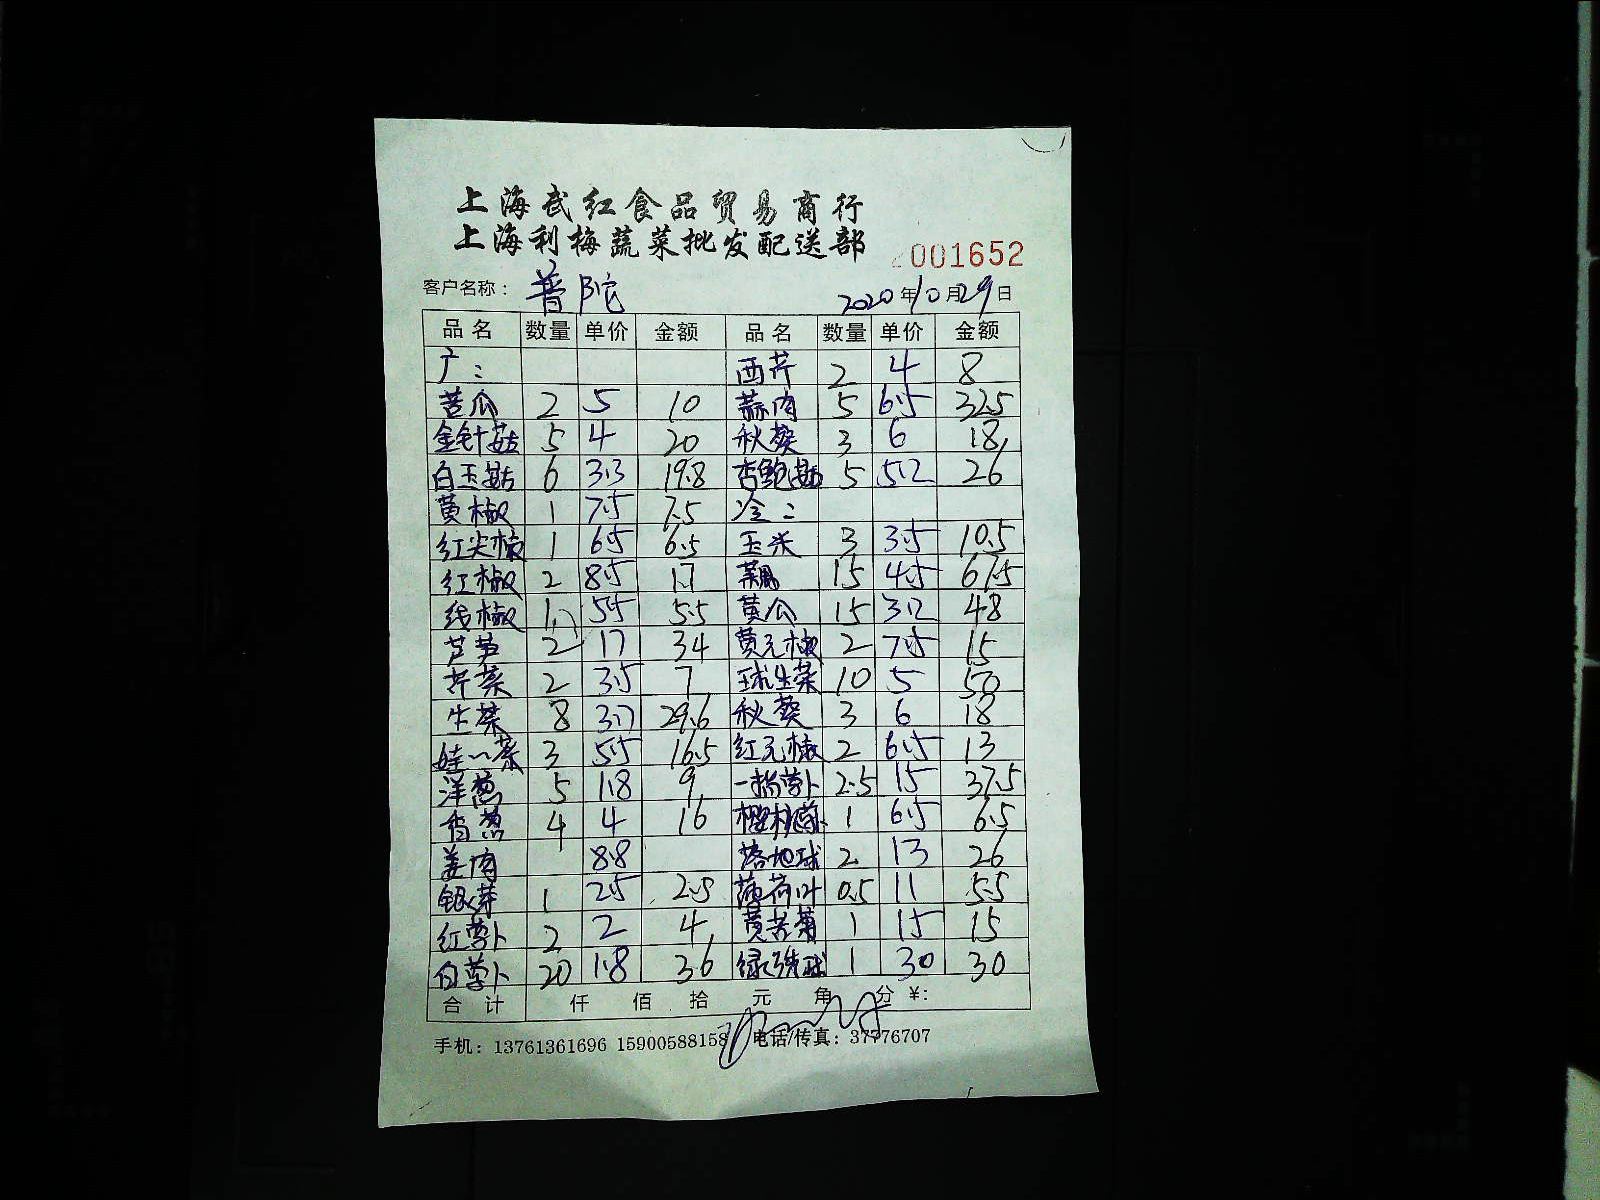 上海武红食品贸易商行
上海利梅蔬菜批发配送部
2001652
客户名称：普陀 2020年10月29日
品名 数量 单价 金额 品名 数量 单价 金额
广： 西芹 2 4 8
苦瓜 2 5 10 蒜肉 5 6.5 32.5
金针菇 5 4 20 秋葵 3 6 18
白玉菇 6 3.3 19.8 杏鲍菇 5 5.2 26
黄椒 1 7.5 7.5 冷：
红尖椒 1 6.5 6.5 玉米 3 3.5 10.5
红椒 2 8.5 17 15 4.5 67.5
线椒 1 5.5 5.5 黄瓜 15 3.2 48
芦笋 2 17 34 黄元椒 2 7.5 15
芹菜 2 3.5 7 球生菜 10 5 50
生菜 8 3.7 29.6 秋葵 3 6 18
娃娃菜 3 5.5 16.5 红元椒 2 6.5 13
洋葱 5 1.8 9 一指萝卜 2.5 15 37.5
香葱 4 4 16 樱桃萝卜 1 6.5 6.5
姜肉 8.8 落地球 2 13 26
银芽 1 2.5 2.5 薄荷叶 0.5 11 5.5
红萝卜 2 2 4 黄苦菊 1 15 15
白萝卜 20 1.8 36 绿球 1 30 30
合计 仟 佰 拾 元 角 分 ¥:
手机：13761361696 15900588158 电话/传真：37776707